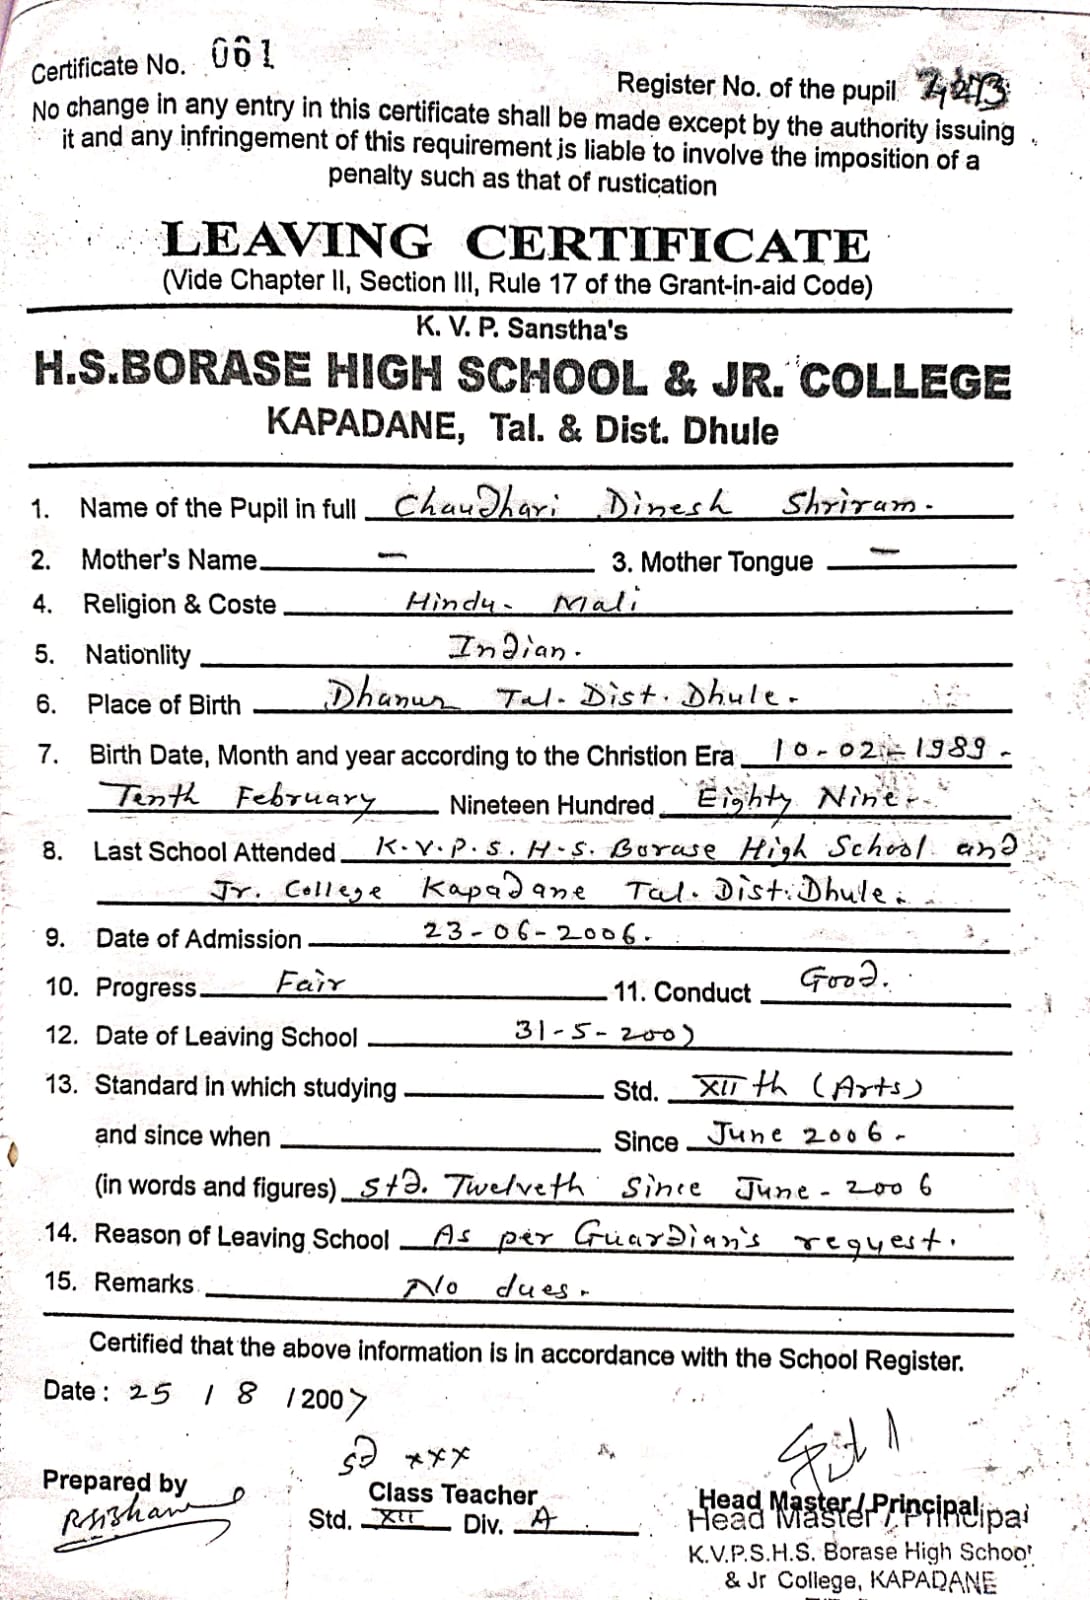 Certificate No. 061
Register No. of the pupil
No change in any entry in this certificate shall be made except by the authority issuing
it and any infringement of this requirement is liable to involve the imposition of a
penalty such as that of rustication
LEAVING CERTIFICATE
(Vide Chapter II, Section III, Rule 17 of the Grant-in-aid Code)
K. V. P. Sanstha's
H.S.BORASE HIGH SCHOOL & JR. COLLEGE
KAPADANE, Tal. & Dist. Dhule
1. Name of the Pupil in full Chaudhari Dinesh Shriram.
2. Mother's Name — 3. Mother Tongue —
4. Religion & Coste Hindu - Mali
5. Nationlity Indian.
6. Place of Birth Dhanur Tal. Dist. Dhule.
7. Birth Date, Month and year according to the Christion Era 10-02-1989
Tenth February Nineteen Hundred Eighty Nine
8. Last School Attended K.V.P.S. H.S. Borase High School and
Jr. College Kapadane Tal. Dist. Dhule.
9. Date of Admission 23-06-2006.
10. Progress Fair 11. Conduct Good.
12. Date of Leaving School 31-5-2007
13. Standard in which studying Std. XIIth (Arts)
and since when Since June 2006
(in words and figures) Std. Twelveth Since June-2006
14. Reason of Leaving School As per Guardian's request.
15. Remarks No dues.
Certified that the above information is in accordance with the School Register.
Date : 25 / 8 / 2007
Sd xxx
Prepared by Class Teacher Head Master / Principal
Head Master / Principal
Std. XII Div. A
K.V.P.S.H.S. Borase High School
& Jr College, KAPADANE